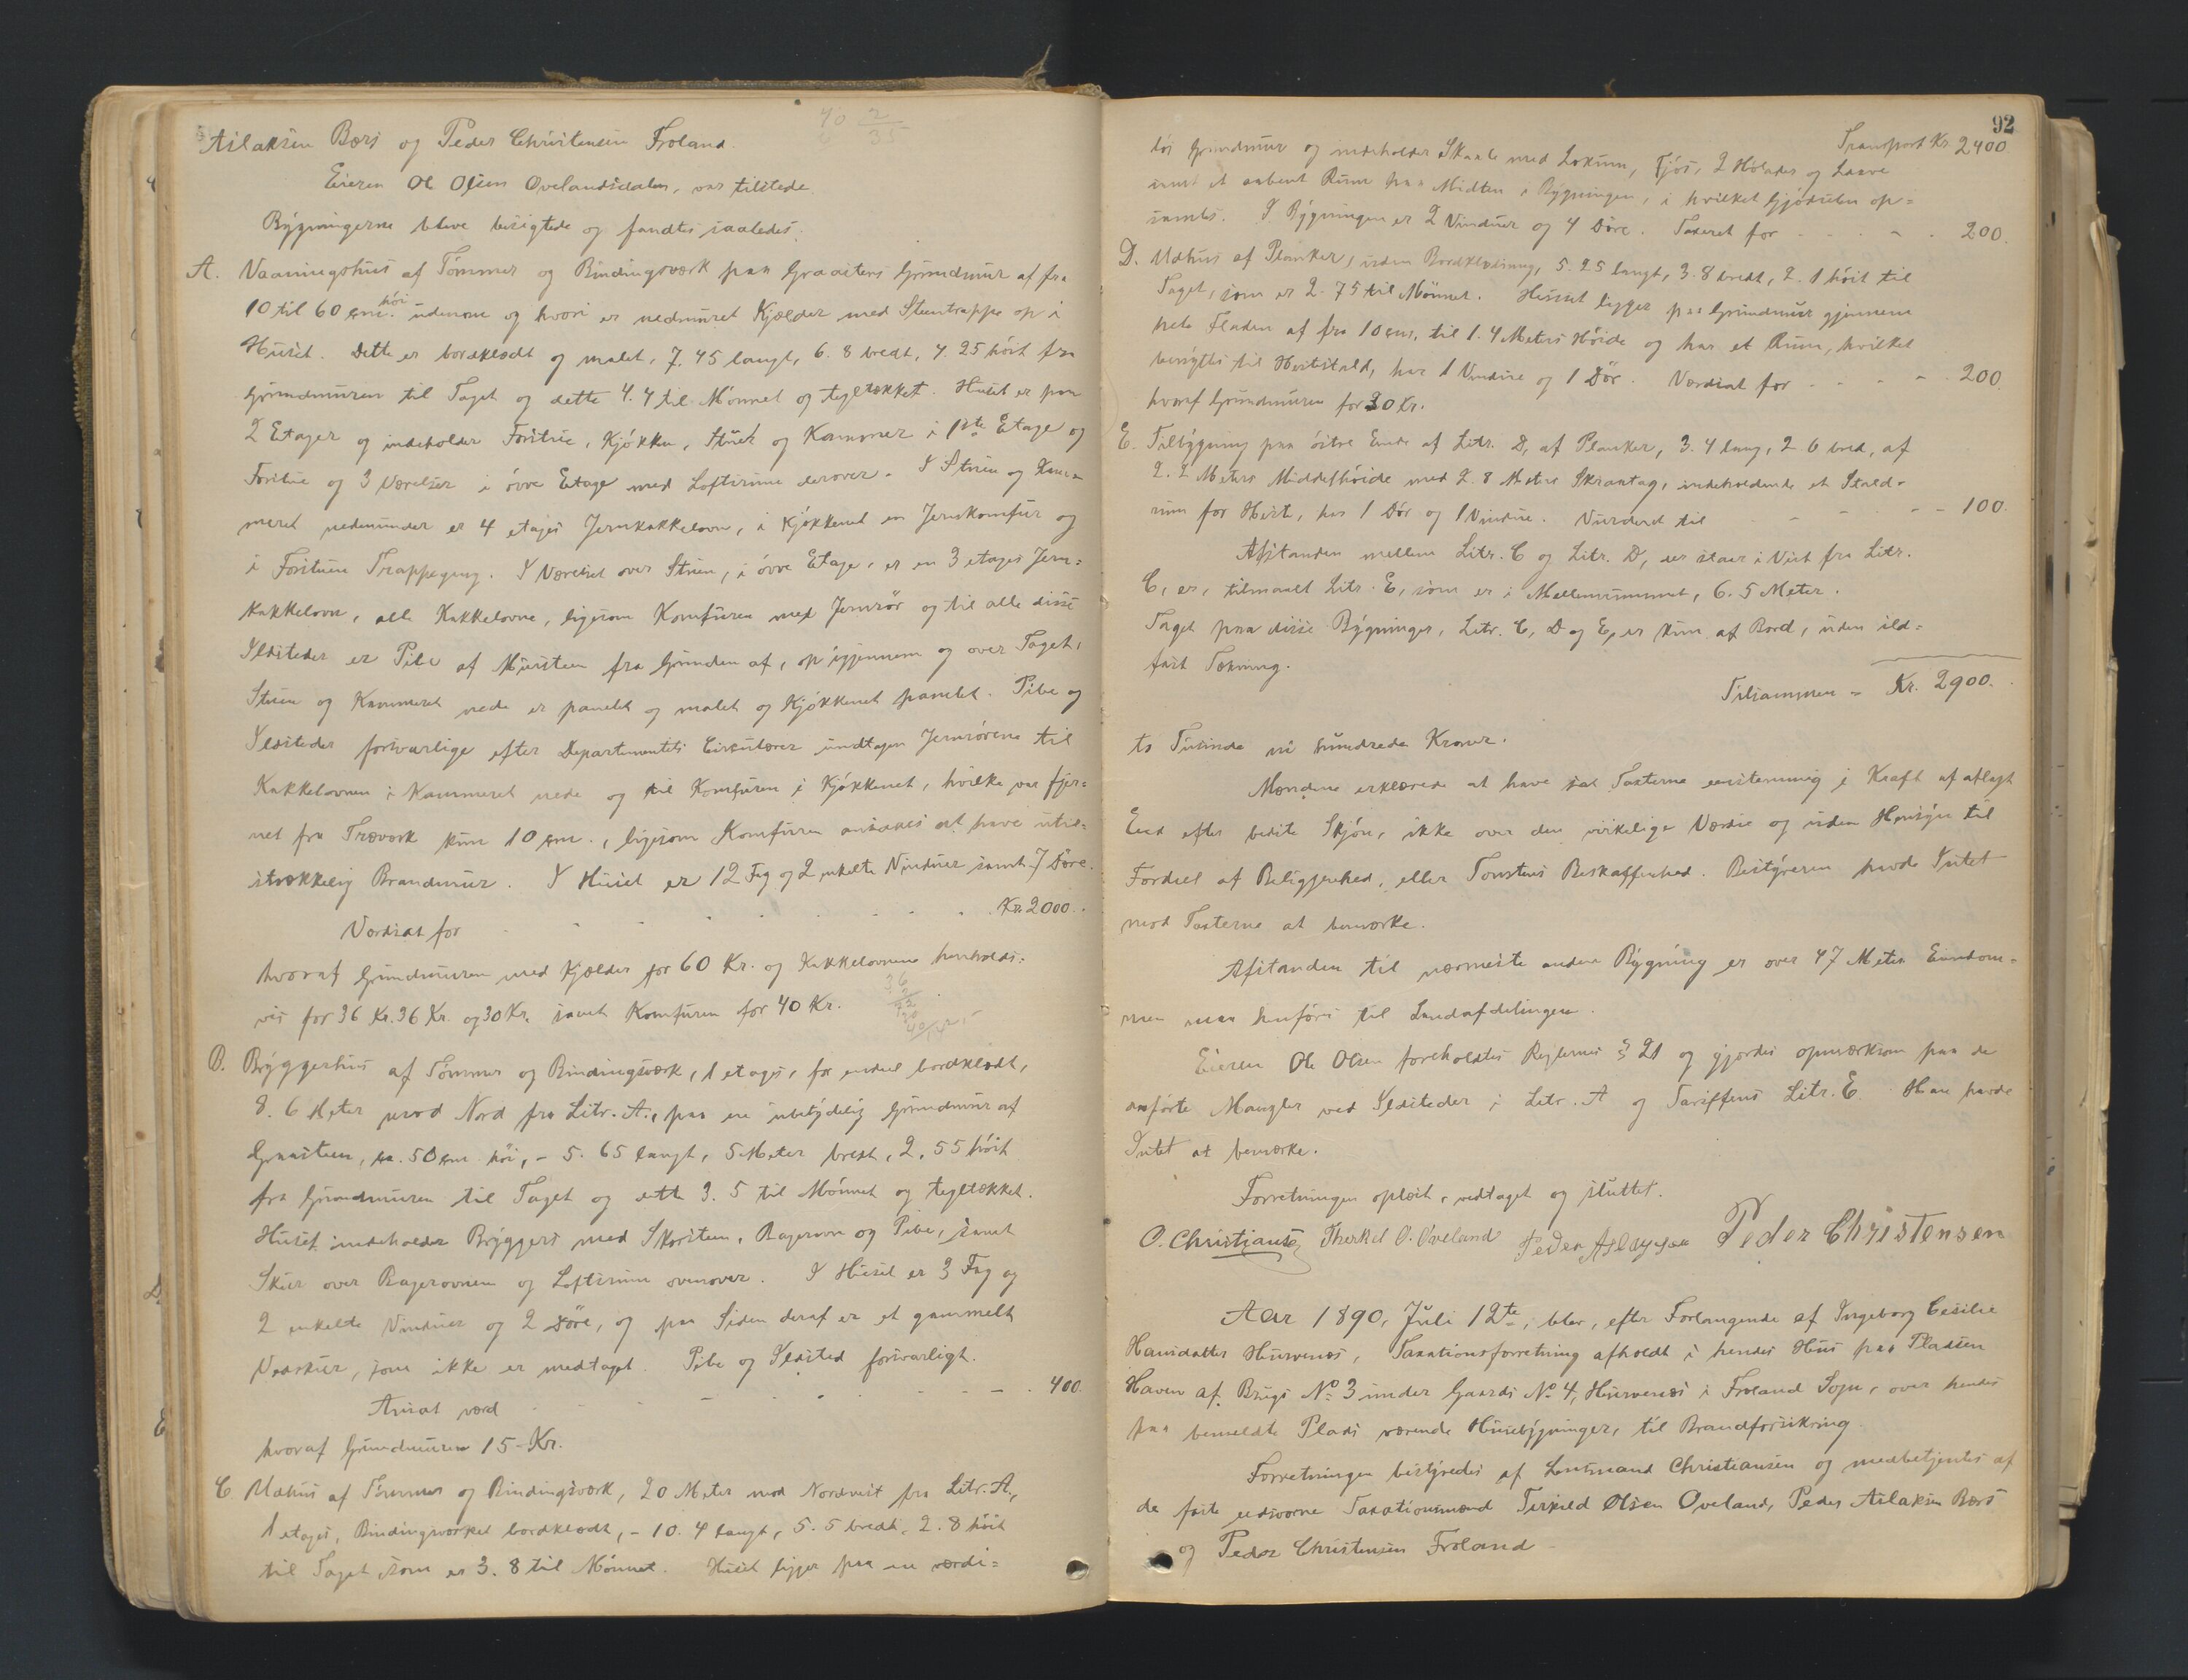 Aslaksen Børs og Peder Christensen Froland.
Eieren Ole Olsen Ovelandsdalen, var tilstede.
Bygningerne bleve besigtede og fandtes saaledes:
A. Vaaningshus af Tømmer og Bindingsværk paa Graastens Grundmur af fra
10 til 60 cm. høi udenom og hvori er nedmuret Kjælder med Steentrappe op i
Huset. Dette er bordklædt og malet, 7.45 langt, 6.8 bredt, 4.25 høit fra
Grundmuren til Taget og dette 4.4 til Mønnet og tegltækket. Huset er paa
2 Etager og indeholder Forstue, Kjøkken, Stue og Kammer i 1ste Etage og
Forstue og 3 Værelser i øvre Etage med Loftsrum derover. I Stuen og Kam=
meret nedenunder er 4 etages Jernkakkelovn, i Kjøkkenet en Jernkomfur og
i Forstuen Trappegang. I Værelset over Stuen, i øvre Etage, er en 3 etages Jern=
kakkelovn, alle Kakkelovne, ligesom Komfuren med Jernrør og til alle disse
Ildsteder er Pibe af Mursteen fra Grunden af, op igjennem og over Taget,
Stuen og Kammeret nede er panelet og malet og Kjøkkenet panelet. Pibe og
Ildsteder forsvarlige efter Departementets Circulærer undtagen Jernrørene til
Kakkelovnen i Kammeret nede og til Komfuren i Kjøkkenet, hvilke var fjer=
net fra Træværk kun 10 cm., ligesom Komfuren ansaaes at have util=
strækkelig Brandmur. I Huset er 12 Fag og 2 enkelte Vinduer samt 7 Døre.
Værdsat for - - - - Kr. 2000.
hvoraf Grundmuren med Kjælder for 60 Kr. og Kakkelovnene henholds=
vis for 36 Kr. 36 Kr. og 30 Kr. samt Komfuren for 40 Kr.
B. Bryggerhus af Tømmer og Bindingsværk, 1 etages, for endeel bordklædt,
8.6 Meter mod Nord fra Litr. A., paa en ubetydelig Grundmur af
Graasteen, ca. 50 cm høi, - 5.65 langt, 5 Meter bredt, 2.55 høit
fra Grundmuren til Taget og dette 3.5 til Mønnet og tegltækket.
Huset indeholder Bryggers med Skorsteen, Bagerovn og Pibe, samt
Skur over Bagerovnen og Loftsrum ovenover. I Huset er 3 Fag og
2 enkelte Vinduer og 2 Døre, og paa Siden deraf er et gammelt
Vedskur, som ikke er medtaget. Pibe og Ildsted forsvarligt.
Ansat værd - - - - 400.
hvoraf Grundmuren 15 - Kr.
C Udhus af Tømmer og Bindingsværk, 20 Meter mod Nordvest fra Litr. A.,
1 etages, Bindingsværket bordklædt, - 10.4 langt, 5.5 bredt, 2.8 høit
til Taget som er 3.8 til Mønnet. Huset ligger paa en værdi=
92
Transport Kr. 2400
løs Grundmur og indeholder Skaale med Lokum, Fjøs, 2 Hølader og Laave
samt et aabent Rum paa Midten i Bygningen, i hvilket Gjødselen op=
samles. I Bygningen er 2 Vinduer og 4 Døre. Taxeret for - - - 200.
D. Udhus af Planker, uden Bordklædning, 5.25 langt, 3.8 bredt, 2.1 høit til
Taget, som er 2.75 til Mønnet. Huset ligger paa Grundmur gjennem
hele Fladen af fra 10 cm. til 1.4 Meters Høide og har et Rum, hvilket
benyttes til Hestestald, har 1 Vindue og 1 Dør. Værdsat for - - - 200.
hvoraf Grundmuren for 30 Kr.
E. Tilbygning paa østre Ende af Litr. D, af Planker, 3.4 lang, 2.6 bred, af
2.2 Meters Middelshøide med 2.8 Meters Skraatag, indeholdende et Stald-
rum for Hest, har 1 Dør og 1 Vindue. Vurderet til - - - 100.
Afstanden mellem Litr. C og Litr. D, der staar i Vest fra Litr.
C, er, tilmaalt Litr. E, som er i Mellemrummet, 6.5 Meter.
Taget paa disse Bygninger, Litr. C, D og E, er kun af Bord, uden ild=
fast Tækning.
Tilsammen - Kr. 2900.
to Tusinde ni hundrede Kroner.
Mændene erklærede at have sat Taxterne eenstemmig i Kraft af aflagt
Eed efter bedste Skjøn, ikke over den virkelige Værdie og uden Hensyn til
Fordeel af Beliggenhed, eller Tomtens Beskaffenhed. Bestyreren havde Intet
mod Taxterne at bemærke.
Afstanden til nærmeste anden Bygning er over 47 Meter. Eiendom=
men maa henføres til Landafdelingen.
Eieren Ole Olsen foreholdtes Reglernes § 21 og gjordes opmærksom paa de
anførte Mangler ved Ildsteder i Litr. A og Tariffens Litr. E. Han havde
Intet at bemærke.
Forretningen oplæst, vedtaget og sluttet.
O. Christiansen Therkel O. Øveland Peder Aslaksen Peder Christensen
Aar 1890, Juli 12te, blev, efter Forlangende af Ingeborg Cesilie
Hansdatter Hurvenæs, Taxationsforretning afholdt i hendes Hus paa Pladsen
Haven af Brugs No 3 under Gaards No 4, Hurvenæs i Froland Sogn, over hendes
paa bemeldte Plads værende Husebygninger, til Brandforsikring.
Forretningen bestyredes af Lensmand Christiansen og medbetjentes af
de faste edsvorne Taxationsmænd Terkild Olsen Oveland, Peder Aslaksen Børs
og Peder Christensen Froland -